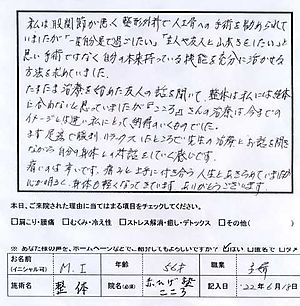 私は股関節が悪く整形外科で人工骨への手術を勧められて
いましたが「一生自分の足で過ごしたい」「主人や友人と山歩きをしたい」と
思い手術ではなく自分の本来持っている機能を充分に活かせる
方法を求めていました。
たまたま治療を始めた友人の話を聞いて、整体は私には体
に合わないと思っていましたが「こころ」さんの治療は今までの
イメージとは違い私にとって納得のいくものでした。
まず足湯で暖まりリラックスしたところで先生の治療とお話を聞き
ながら自分の身体との対話をしていく感じです。
痛いのは辛いです。痛みと上手に付き合う人生と思っていましたが
心が明るく、身体が軽くなってきています。ありがとうございます。
本日、ご来院された理由に当てはまる項目をチェックください。
□肩こり・腰痛 □むくみ・冷え性 □ストレス解消・癒し・デトックス □その他( )
※ あなた様の声を、ホームページなどでご紹介してもよろしいですか? はい □匿名で
お名前 (イニシャル可) M.I 年齢 56才 職業 主婦
施術名 整体 院名(必須) こころ 記入日 '22年6月18日